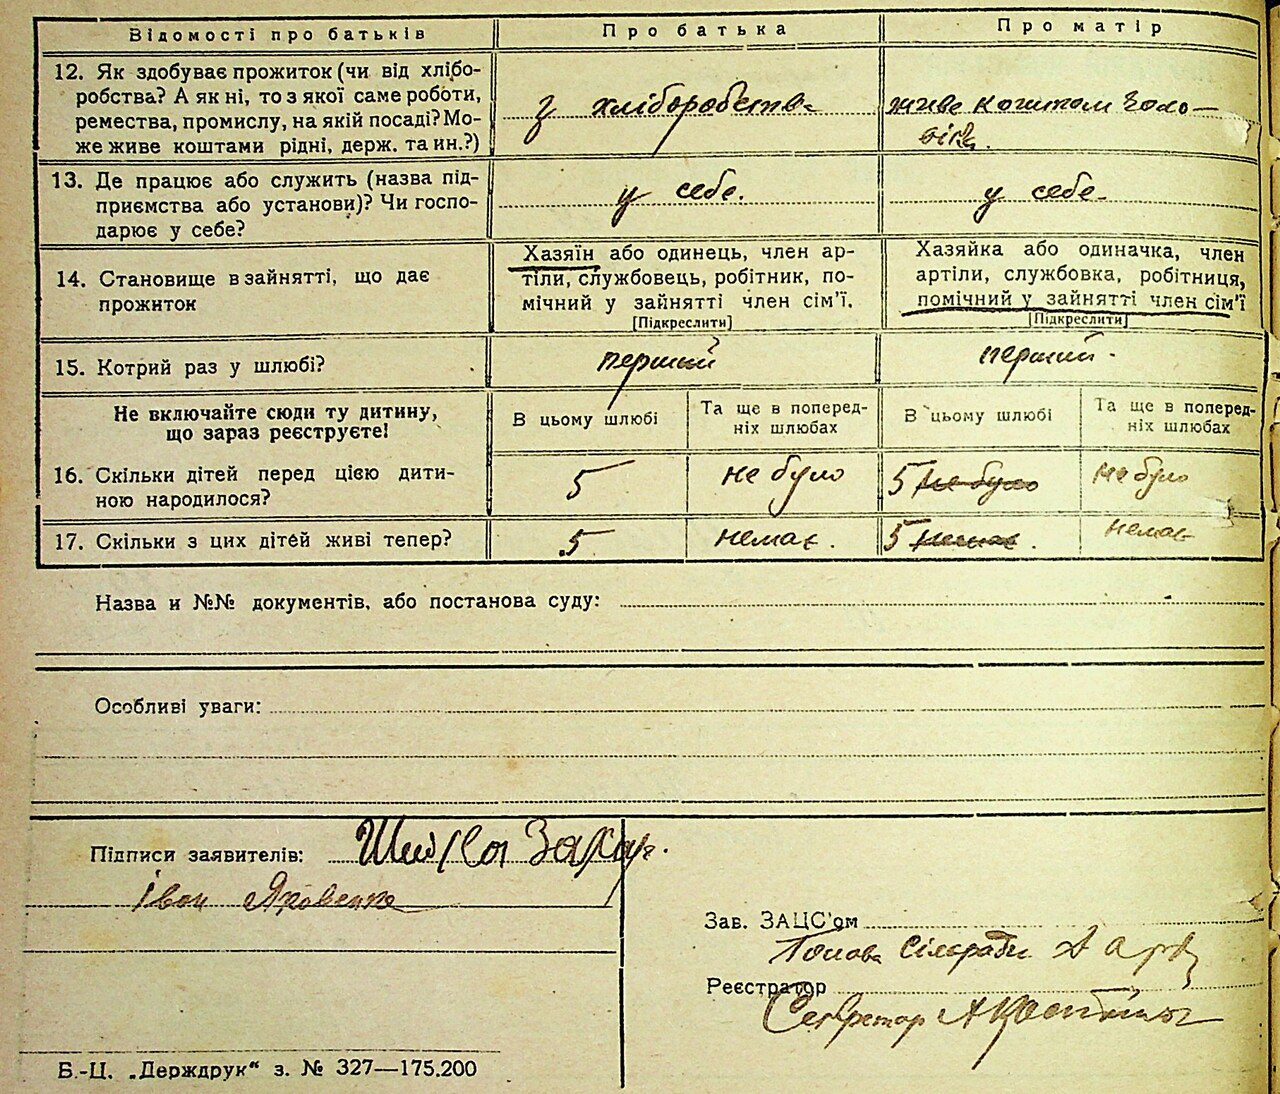 Відомості про батьків
Про батька
Про матір
12. Як здобуває прожиток (чи від хлібо-
робства? А як ні, то з якої саме роботи,
ремества, промислу, на якій посаді? Мо-
же живе коштами рідні, держ. та ин.?)
з хліборобства
живе коштом Чоло-
віка.
13. Де працює або служить (назва під-
приємства або установи)? Чи госпо-
дарює у себе?
у себе.
у себе.
14. Становище в зайнятті, що дає
прожиток
Хазяїн або одинець, член ар-
тіли, службовець, робітник, по-
мічний у зайнятті член сім'ї.
[Підкреслити]
Хазяйка або одиначка, член
артіли, службовка, робітниця,
помічний у зайнятті член сім'ї
[Підкреслити]
15. Котрий раз у шлюбі?
перший
перший.
Не включайте сюди ту дитину,
що зараз реєструєте!
В цьому шлюбі
Та ще в поперед-
ніх шлюбах
В цьому шлюбі
Та ще в поперед-
ніх шлюбах
16. Скільки дітей перед цією дити-
ною народилося?
5
не було
5 не було
не було
17. Скільки з цих дітей живі тепер?
5
немає.
5 немає.
немає
Назва и №№ документів, або постанова суду:
Особливі уваги:
Підписи заявителів:
Захар.
Іван Яковенко
Зав. ЗАЦС'ом
Голова Сільради
Реєстратор
Секретар
Б.-Ц. „Держдрук“ з. № 327—175.200